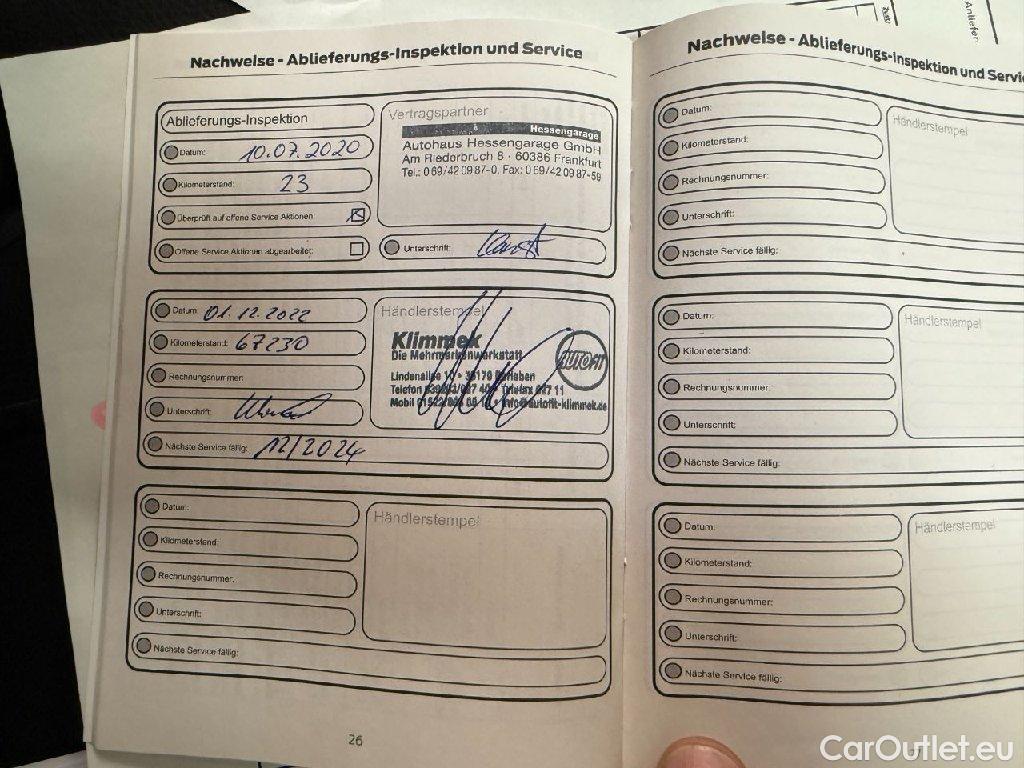 Nachweise - Ablieferungs-Inspektion und Service
Ablieferungs-Inspektion
Datum: 10.07.2020
Kilometerstand: 23
Überprüft auf offene Service Aktionen
Offene Service Aktionen abgearbeitet:
Vertragspartner
Hessengarage
Autohaus Hessengarage GmbH
Am Riederbruch 8 · 60386 Frankfurt
Tel.: 069/42 09 87-0, Fax: 069/42 09 87-59
Unterschrift:
Datum: 01.12.2022
Kilometerstand: 67230
Rechnungsnummer:
Unterschrift:
Nächste Service fällig: 12/2024
Händlerstempel
Klimmek
Die Mehrmarkenwerkstatt
AUTOFIT
Lindenallee
Telefon
Mobil info@autofit-klimmek.de
Datum:
Kilometerstand:
Rechnungsnummer:
Unterschrift:
Nächste Service fällig:
Händlerstempel
26
Nachweise - Ablieferungs-Inspektion und Servi
Datum:
Kilometerstand:
Rechnungsnummer:
Unterschrift:
Nächste Service fällig:
Händlerstempel
Datum:
Kilometerstand:
Rechnungsnummer:
Unterschrift:
Nächste Service fällig:
Händlerstempel
Datum:
Kilometerstand:
Rechnungsnummer:
Unterschrift:
Nächste Service fällig:
Händlerstempel
CarOutlet.eu